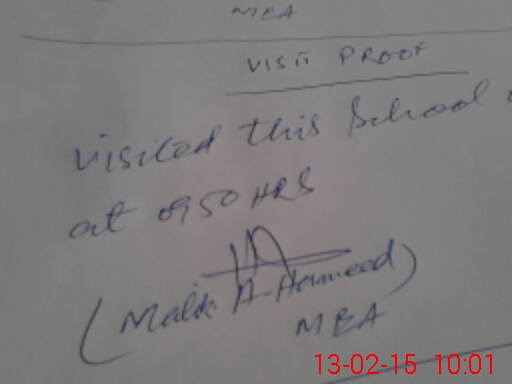 MEA
VISIT PROOF
visited this School
at 0950 HRS
(Malik A. Hameed)
MEA
13-02-15 10:01